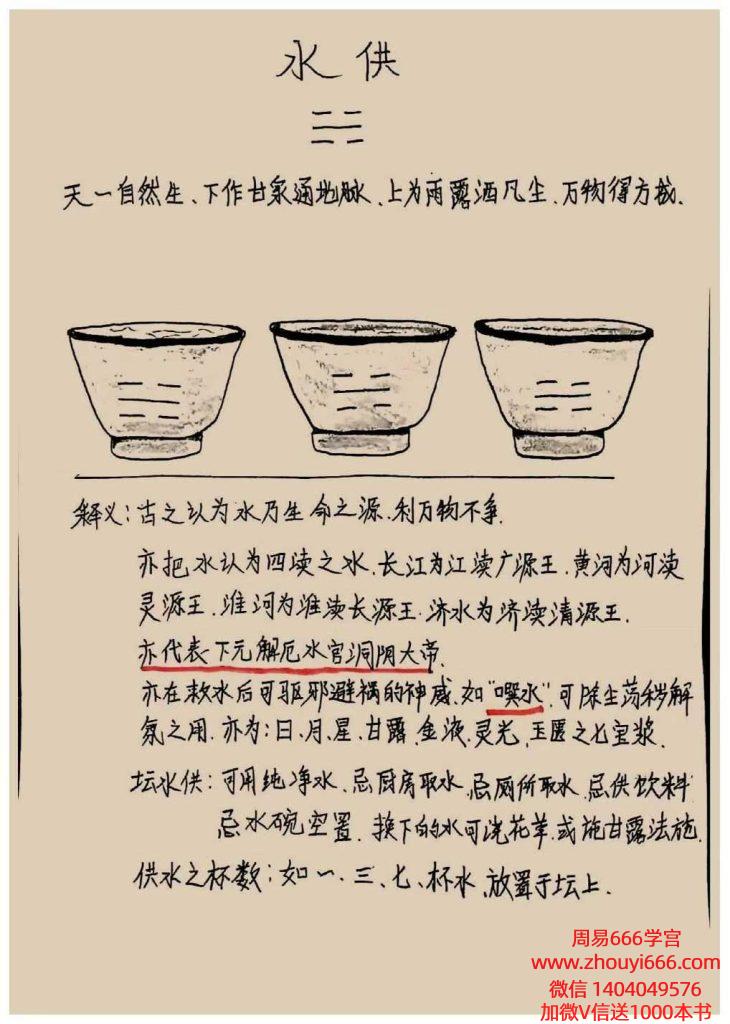 水供
天一自然生、下作甘泉通地脉、上为雨露洒凡尘、万物得方成、
释义：古之认为水乃生命之源、利万物不争、
亦把水认为四渎之水、长江为江渎广源王、黄河为河渎
灵源王、淮河为淮渎长源王、济水为济渎清源王、
亦代表下元解厄水官洞阴大帝、
亦在敕水后可驱邪避祸的神威、如"噀水"、可除尘荡秽解
氛之用、亦为：日、月、星、甘露、金液、灵光、玉匮之七宝浆、
坛水供：可用纯净水、忌厨房取水、忌厕所取水、忌供饮料
忌水碗空置、换下的水可浇花草、或施甘露法施、
供水之杯数；如一、三、七、杯水、放置于坛上、
周易666学宫
www.zhouyi666.com
微信 1404049576
加微V信送1000本书